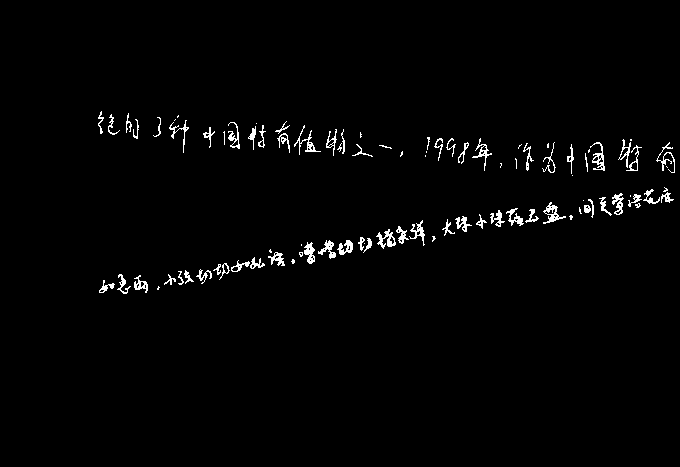 绝的3种中国特有植物之一，1998年，作为中国特有
如急雨，小弦切切如私语。嘈嘈切切错杂弹，大珠小珠落玉盘。间关莺语花底